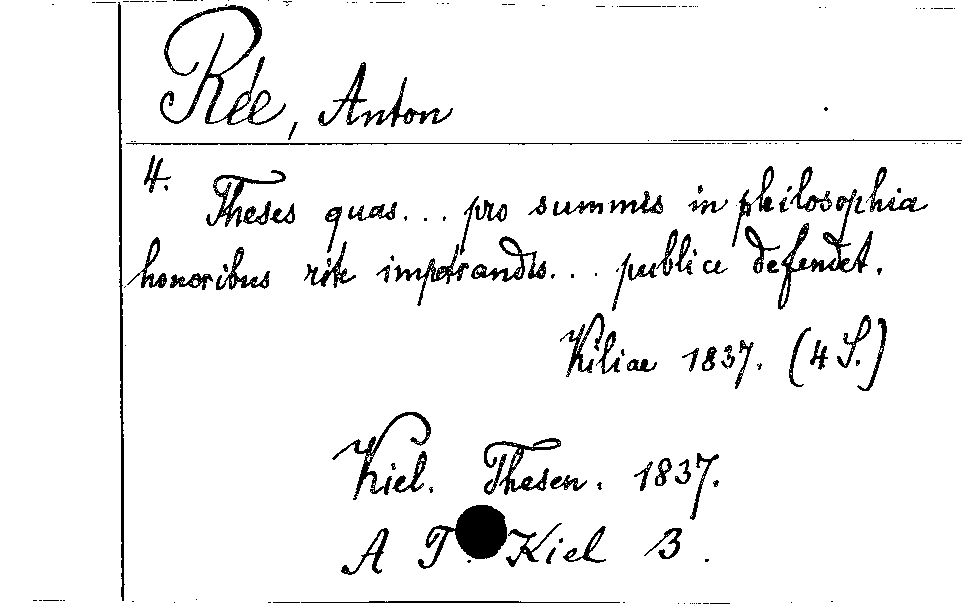 Rée, Anton
4.
Theses quas... pro summis in philosophia
honoribus rite impetrandis... publice defendet.
Kiliae 1837. (4 S.)
Kiel. Thesen. 1837.
A T. Kiel 3.